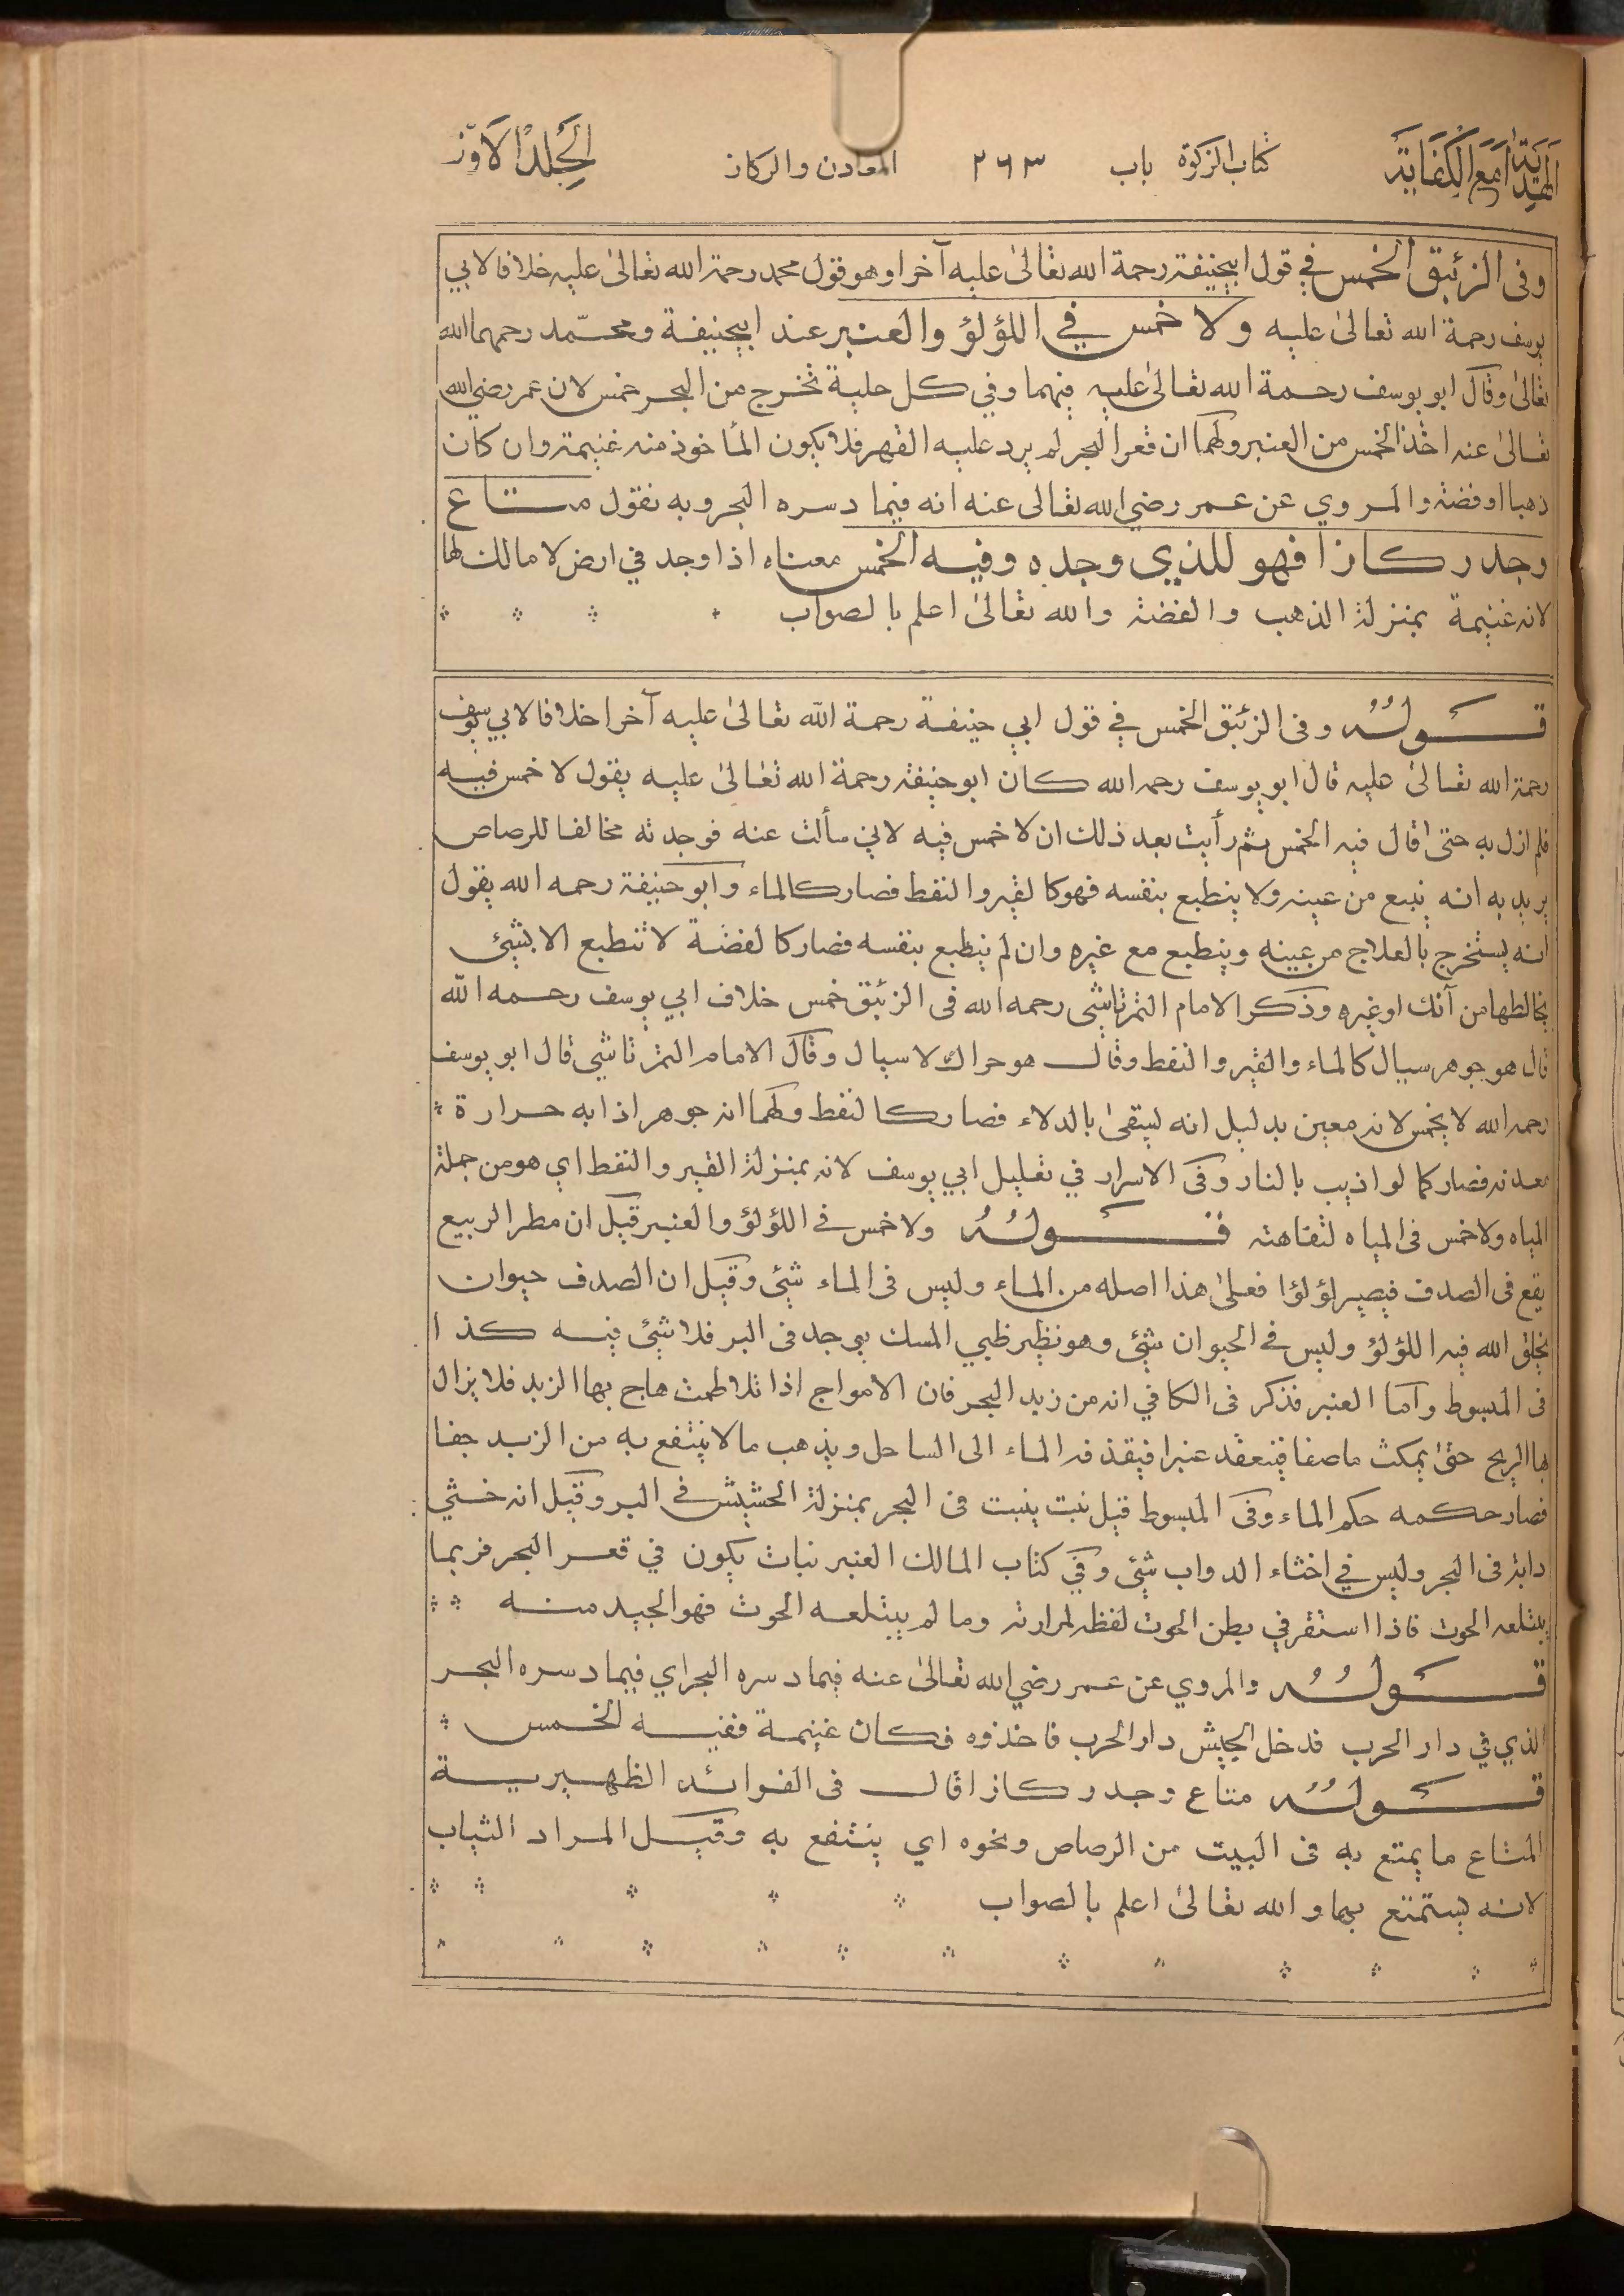 الهداية مع الكفاية كتاب الزكوة باب ٢٦٣ المعادن والركاز الجلد الاول
وفى الزئبق الخمس في قول ابيحنيفة رحمة الله تعالىٰ عليه آخرا وهو قول محمد رحمة الله تعالىٰ عليه خلافا لابي
يوسف رحمة الله تعالىٰ عليه ولا خمس في اللؤلؤ والعنبر عند ابيحنيفة ومحمّد رحمهما الله
تعالىٰ وقال ابو يوسف رحمة الله تعالىٰ عليه فيهما وفي كل حلية تخرج من البحر خمس لان عمر رضي الله
تعالىٰ عنه اخذ الخمس من العنبر ولهما ان قعر البحر لم يرد عليه القهر فلا يكون المأخوذ منه غنيمة وان كان
ذهبا او فضة والمروي عن عمر رضي الله تعالى عنه انه فيما دسره البحر وبه نقول متاع
وجد ركازا فهو للذي وجده وفيه الخمس معناه اذا وجد في ارض لا مالك لها
لانه غنيمة بمنزلة الذهب والفضة والله تعالىٰ اعلم بالصواب
قولُهُ وفى الزئبق الخمس في قول ابي حنيفة رحمة الله تعالىٰ عليه آخرا خلافا لابي يوسف
رحمة الله تعالىٰ عليه قال ابو يوسف رحمه الله كان ابو حنيفة رحمة الله تعالىٰ عليه يقول لا خمس فيه
فلم ازل به حتى قال فيه الخمس ثم رأيت بعد ذلك ان لا خمس فيه لاني سألت عنه فوجدته مخالفا للرصاص
يريد به انه ينبع من عينه ولا ينطبع بنفسه فهو كالقير والنفط فصار كالماء وابو حنيفة رحمه الله يقول
انه يستخرج بالعلاج من عينه وينطبع مع غيره وان لم ينطبع بنفسه فصار كالفضة لا تنطبع الا بشئ
يخالطها من آنك او غيره وذكر الامام التمرتاشى رحمه الله فى الزئبق خمس خلاف ابي يوسف رحمه الله
قال هو جوهر سيال كالماء والقير والنفط وقال هو حراك لا سيال وقال الامام التمرتاشي قال ابو يوسف
رحمه الله لا يخمس لانه معين بدليل انه ليتقىٰ بالدلاء فصار كالنفط ولهما انه جوهر اذا به حرارة
معدنه فصار كما لو اذيب بالنار وفى الاسرار في تعليل ابي يوسف لانه بمنزلة القير والنفط اي هو من جملة
المياه ولا خمس فى المياه لتفاهته قولُهُ ولا خمس فى اللؤلؤ والعنبر قيل ان مطر الربيع
يقع فى الصدف فيصير لؤلؤا فعلىٰ هذا اصله من الماء وليس فى الماء شئ وقيل ان الصدف حيوان
يخلق الله فيه اللؤلؤ وليس فى الحيوان شئ وهو نظير ظبي المسك يوجد فى البر فلا شئ فيه كذا
فى المبسوط واما العنبر فذكر فى الكافي انه من زبد البحر فان الامواج اذا تلاطمت هاج بها الزبد فلا يزال
بها الريح حتىٰ يمكث ماصفا فينعقد عنبرا فيقذفه الماء الى الساحل ويذهب ما لا ينتفع به من الزبد جفا
فصار حكمه حكم الماء وفى المبسوط قيل نبت ينبت فى البحر بمنزلة الحشيش فى البر وقيل انه خثي
دابة فى البحر وليس في اخثاء الدواب شئ وفي كتاب المالك العنبر نبات يكون في قعر البحر فربما
يبتلعه الحوت فاذا استقر في بطن الحوت لفظه لمرارته وما لم يبتلعه الحوت فهو الجيد منه
قولُهُ والمروي عن عمر رضي الله تعالىٰ عنه فيما دسره البحر اي فيما دسره البحر
الذي في دار الحرب فدخل الجيش دار الحرب فاخذوه فكان غنيمة ففيه الخمس
قولُهُ متاع وجد ركازا قال فى الفوائد الظهيرية
المتاع ما يمتع به فى البيت من الرصاص ونحوه اي ينتفع به وقيل المراد الثياب
لانه يستمتع بها والله تعالىٰ اعلم بالصواب